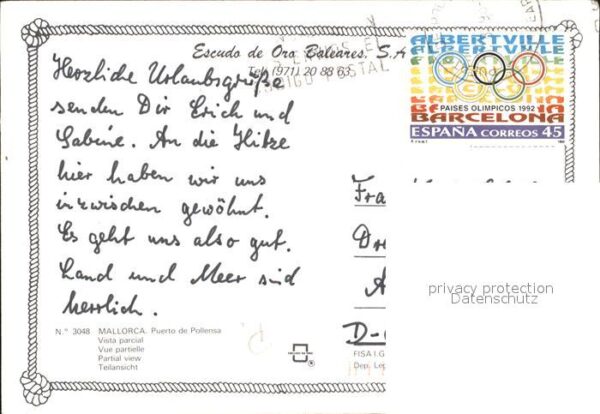 Escudo de Oro Baleares. S.A
Tel. (971) 20 88 63
Herzliche Urlaubsgrüße
senden Dir Erich und
Sabine. An die Hitze
hier haben wir uns
inzwischen gewöhnt.
Es geht uns also gut.
Land und Meer sind
herrlich.
N.° 3048 MALLORCA. Puerto de Pollensa
Vista parcial
Vue partielle
Partial view
Teilansicht
ALBERTVILLE
ALBERTVILLE
PAISES OLIMPICOS 1992
BARCELONA
ESPAÑA CORREOS 45
Fra
D-
FISA I.G
Dep. Lep
privacy protection
Datenschutz